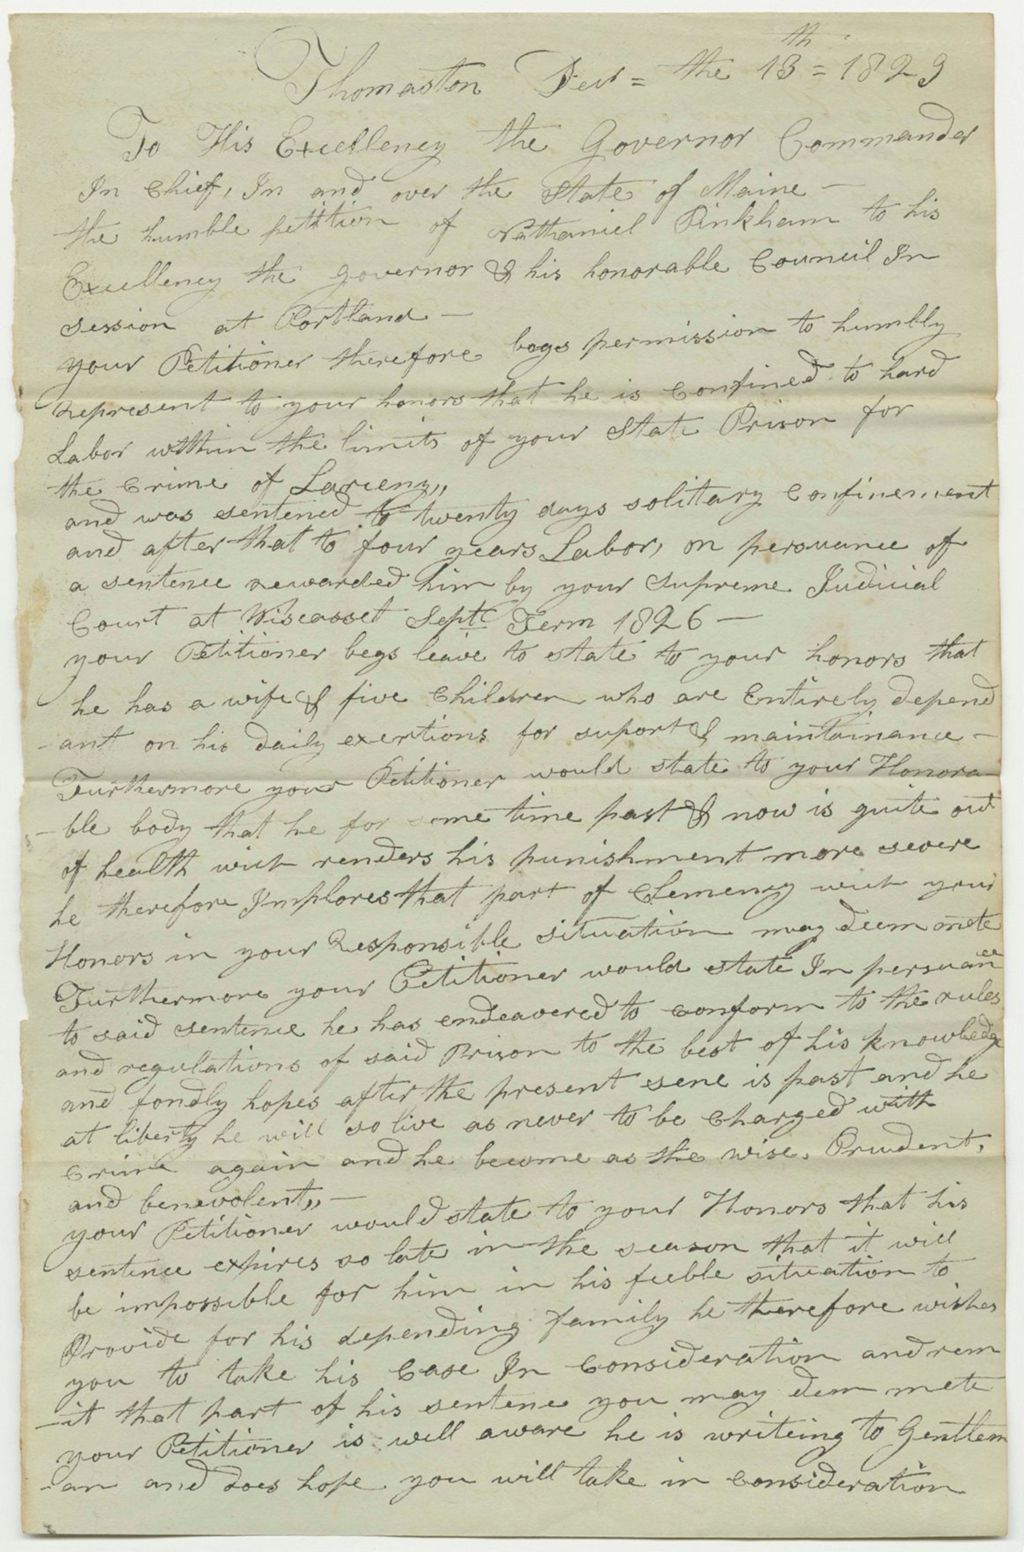 Thomaston = the 13th = 1829
To His Excellency the Governor Commander
In Chief, In and over the State of Maine —
the humble petition of Nathaniel Pinkham to his
Excellency the governor & his honorable Council In
session at Portland —
your Petitioner therefore begs permission to humbly
represent to your honors that he is confined to hard
Labor within the limits of your State Prison for
the Crime of Larceny,,
and was sentenced to twenty days solitary Confinement
and after that to four years Labor, on persuance of
a sentence rewarded him by your Supreme Judicial
Court at Wiscasset Sept. Term 1826 —
your Petitioner begs leave to state to your honors that
he has a wife & five Children who are Entirely depend
-ant on his daily exertions for suport & maintainance —
Furthermore your Petitioner would state to your Honora
-ble body that he for some time past & now is quite out
of health wich renders his punishment more severe
he therefore Implores that part of Clemency wich your
Honors in your Responsible situation may deem mete
Furthermore your Petitioner would state In persuance
to said sentence he has endeavered to conform to the rules
and regulations of said Prison to the best of his knowledge
and fondly hopes after the present sene is past and he
at liberty he will so live as never to be Charged with
Crime again and he become as the wise, Prudent,
and benevolent,, —
your Petitioner would state to your Honors that his
sentence expires so late in the season that it will
be impossible for him in his feeble situation to
Provide for his depending family he therefore wishes
you to take his Case In Consideration and rem
-it that part of his sentence you may dem mete
your Petitioner is well aware he is writeing to Gentlem
-an and does hope you will take in Consideration